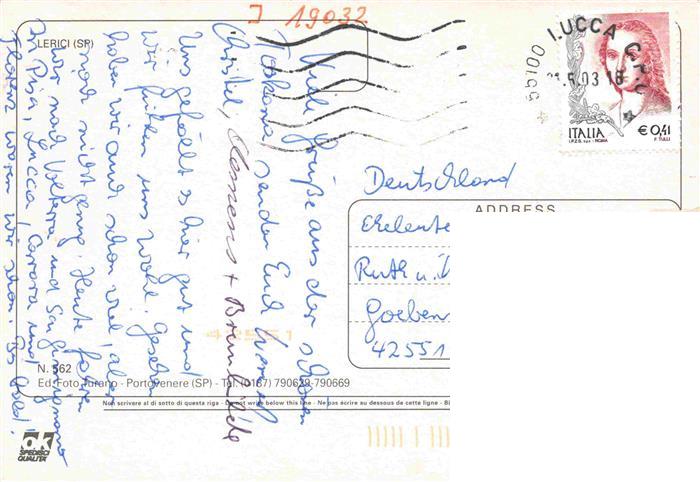 J 19032
LERICI (SP)
55100 LUCCA C.P.
.5.03 18
ITALIA € 0,41
I.P.Z.S. S.p.A. - ROMA F. TULLI
Viele Grüße aus der schönen
Toskana senden Euch
Christel, + Brunhilde
Uns gefällt es hier gut und
wir fühlen uns wohl. Gesehen
haben wir auch schon viel, aber
noch nicht genug. Heute fahren
wir nach Volterra und San Gimignano
In Pisa, Lucca, Carrara und
Florenz waren wir schon. Bis bald!
Deutschland
ADDRESS
Eheleute
Ruth u.
Goeben
42551
42551
N. 562
Ed. Foto Portovenere (SP) - Tel. (0187) 790629-790669
Non scrivere al di sotto di questa riga - Do not write below this line - Ne pas écrire au dessous de cette ligne - Bi
ok
SPEDISCI
QUALITA'